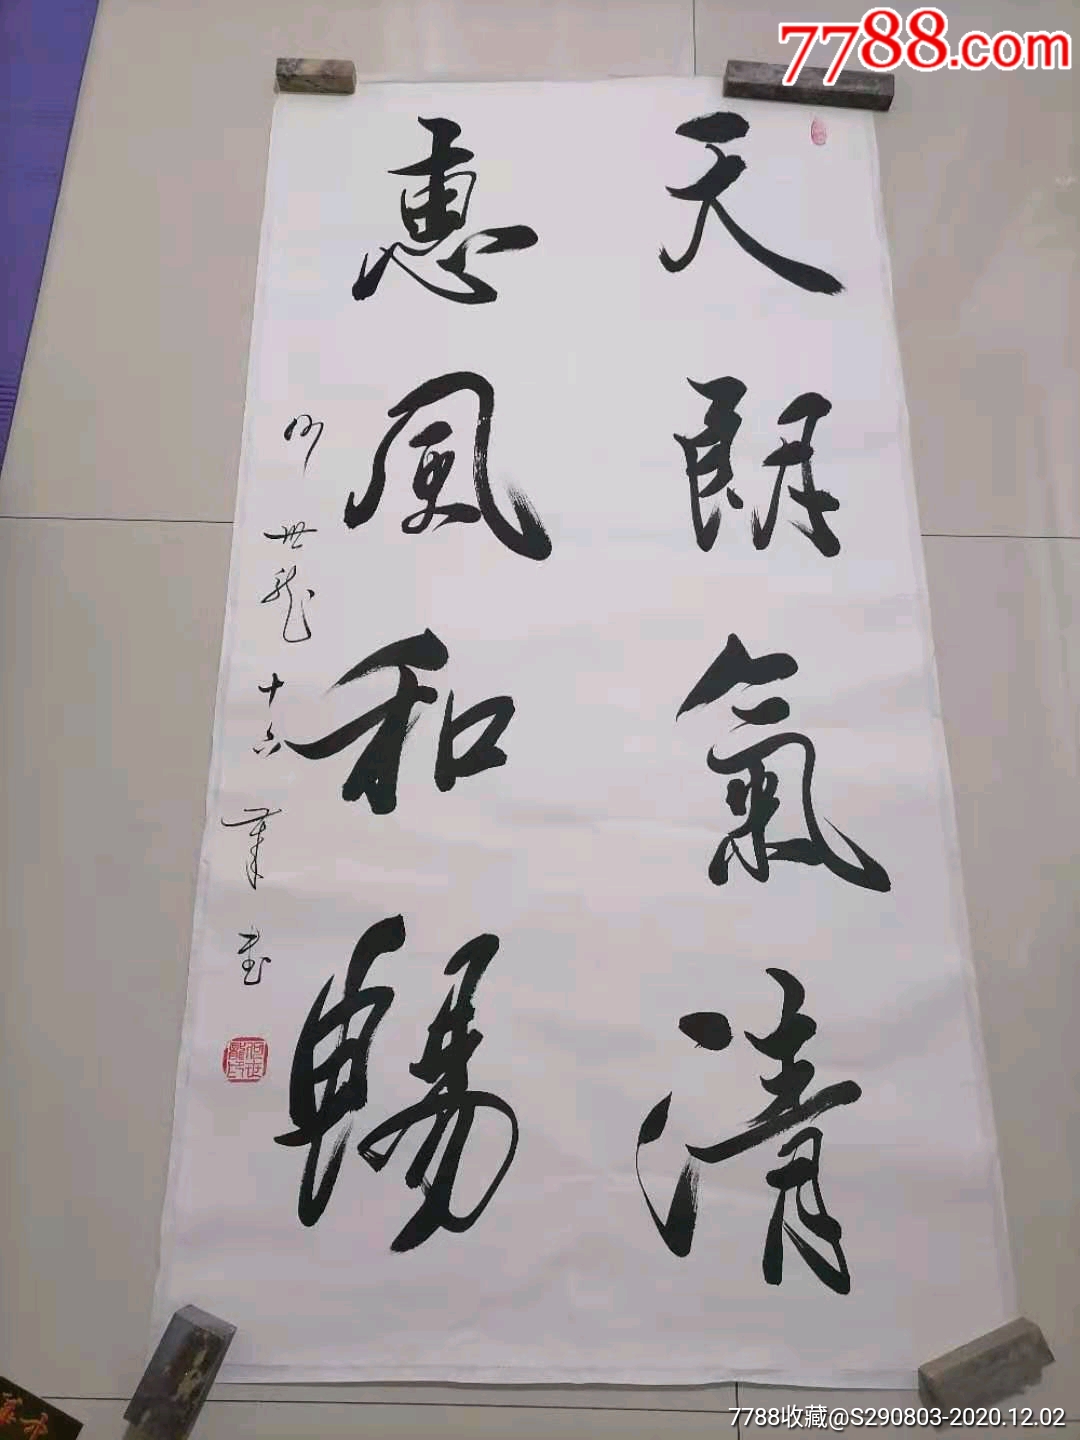 7788.com
天朗氣清
惠風和暢
何世龍十六筆書
何世龍印
7788收藏@S290803-2020.12.02